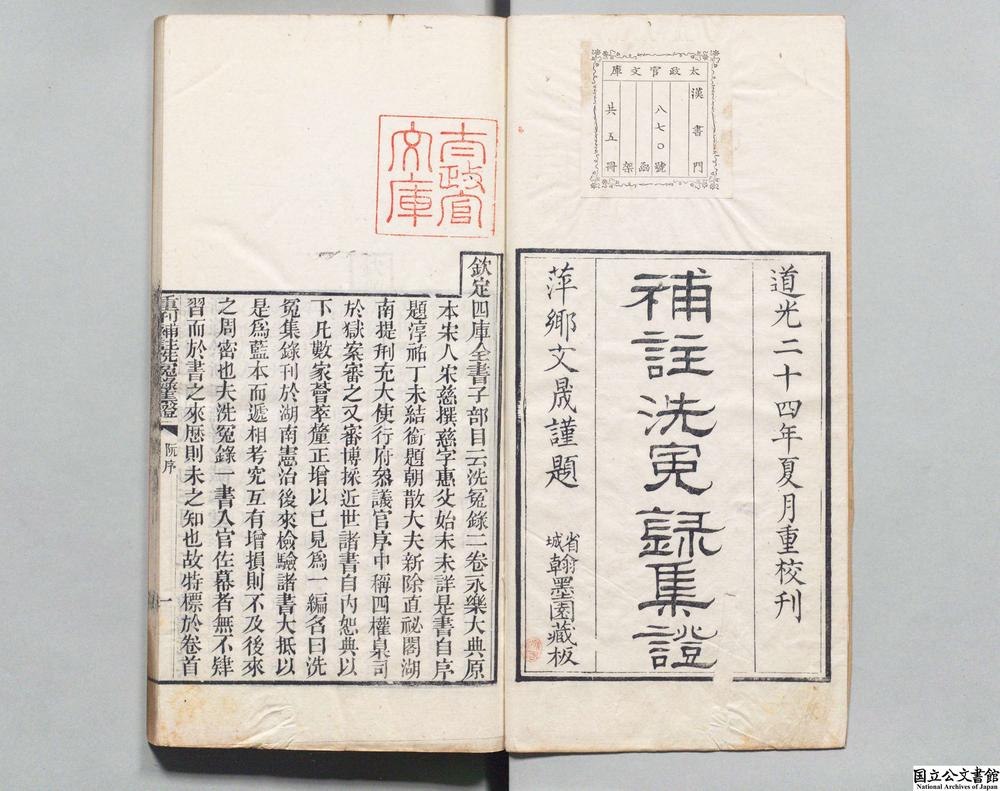 太政官文庫
漢書門
八七〇號
函
架
共五冊
道光二十四年夏月重校刊
補註洗冤録集證
萍鄉文晟謹題
省城翰墨園藏板
太政官文庫
欽定四庫全書子部目云洗冤錄二卷永樂大典原
本宋人宋慈撰慈字惠父始末未詳是書自序
題淳祐丁未結銜題朝散大夫新除直祕閣湖
南提刑充大使行府叅議官序中稱四權臬司
於獄案審之又審博採近世諸書自內恕典以
下凡數家薈萃釐正增以己見爲一編名曰洗
冤集錄刊於湖南憲治後來檢驗諸書大抵以
是爲藍本而遞相考究互有增損則不及後來
之周密也夫洗冤錄一書入官佐幕者無不肄
習而於書之來歷則未之知也故特標於卷首
重刊補註洗冤錄集證
阮序
一
国立公文書館
National Archives of Japan